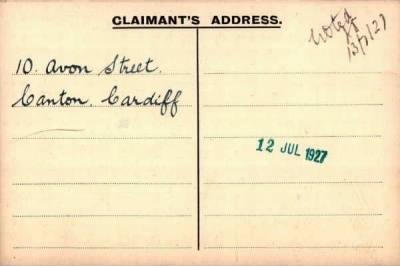 CLAIMANT'S ADDRESS.
Noted
13/7/27
10. Avon Street.
Canton. Cardiff
12 JUL 1927